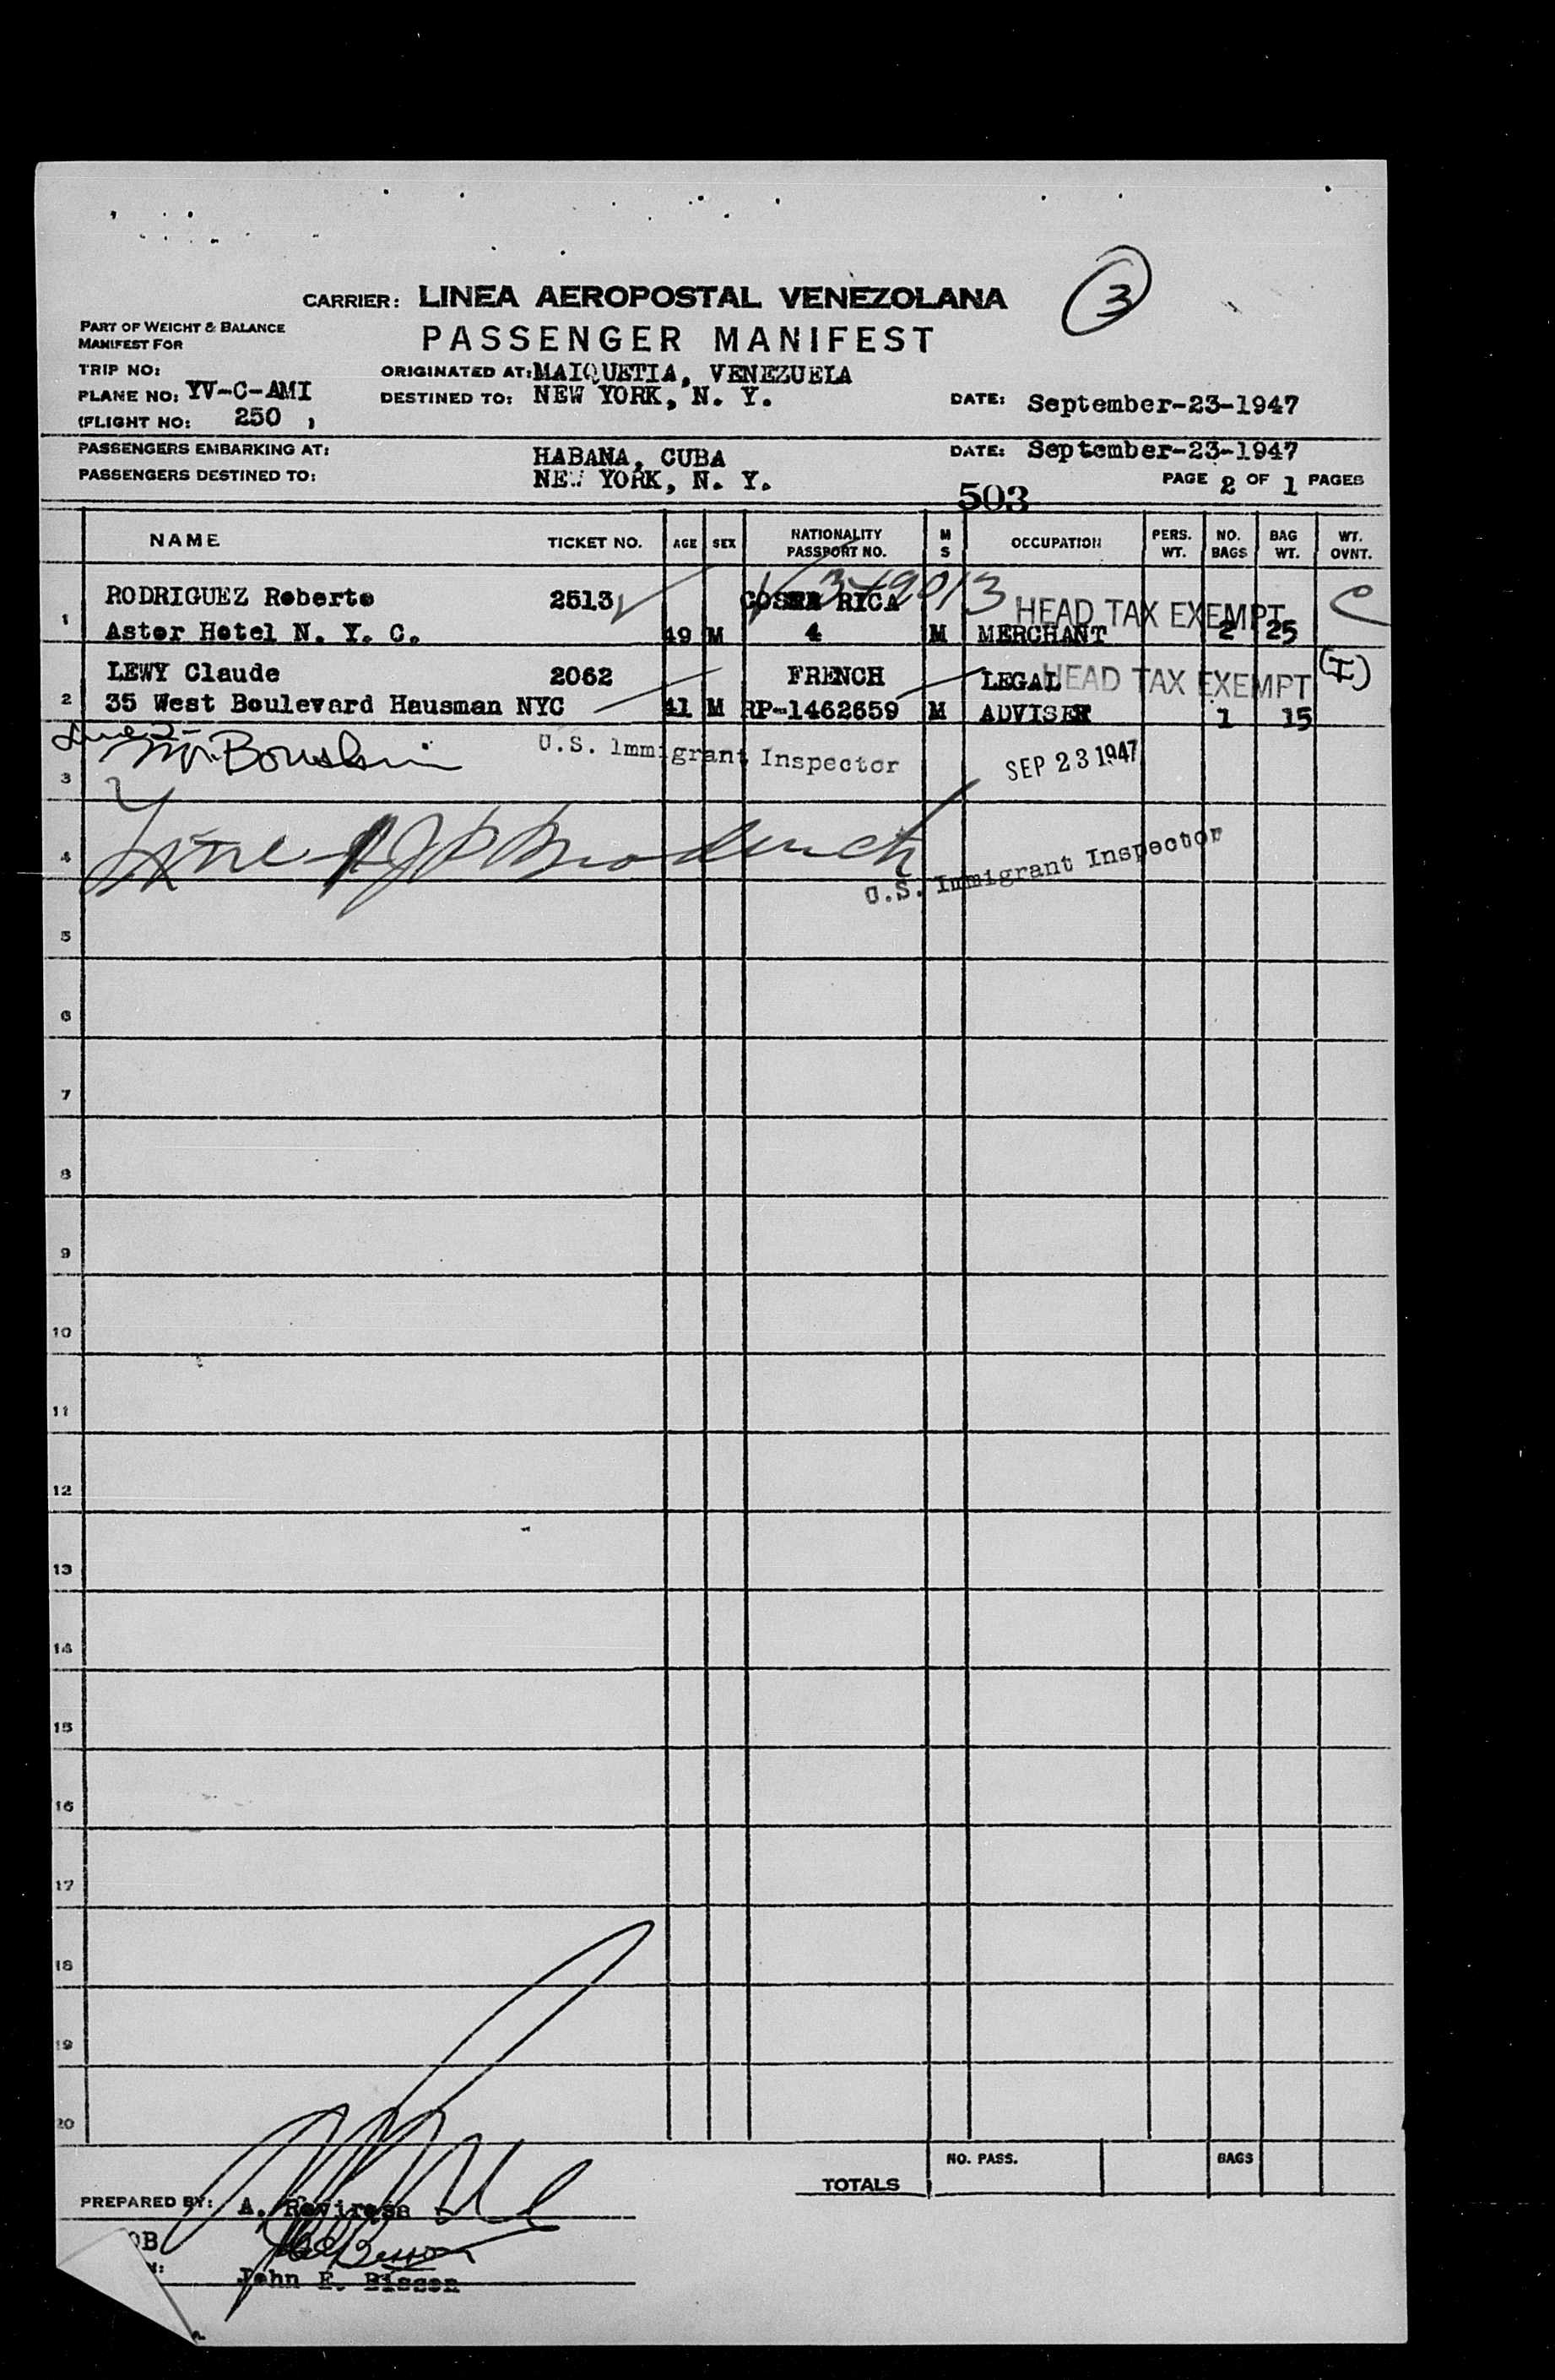 3
CARRIER: LINEA AEROPOSTAL VENEZOLANA
PART OF WEIGHT & BALANCE
MANIFEST FOR
PASSENGER MANIFEST
TRIP NO:
ORIGINATED AT: MAIQUETIA, VENEZUELA
PLANE NO: YV-C-AMI
DESTINED TO: NEW YORK, N. Y.
DATE: September-23-1947
(FLIGHT NO: 250 ,
PASSENGERS EMBARKING AT: HABANA, CUBA
DATE: September-23-1947
PASSENGERS DESTINED TO: NEW YORK, N. Y.
PAGE 2 OF 1 PAGES
503
NAME TICKET NO. AGE SEX NATIONALITY PASSPORT NO. M S OCCUPATION PERS. WT. NO. BAGS BAG WT. WT. OVNT.
RODRIGUEZ Roberto 2513 COSTA RICA HEAD TAX EXEMPT C
1 Astor Hotel N. Y. C. 49 M 4 M MERCHANT 2 25
LEWY Claude 2062 FRENCH LEGAL HEAD TAX EXEMPT (I)
2 35 West Boulevard Hausman NYC 41 M RP-1462659 M ADVISER 1 15
U.S. Immigrant Inspector SEP 23 1947
3
4
U.S. Immigrant Inspector
5
6
7
8
9
10
11
12
13
14
15
16
17
18
19
20
NO. PASS. BAGS
TOTALS
PREPARED BY: A.
OB
N: John F. Bisson